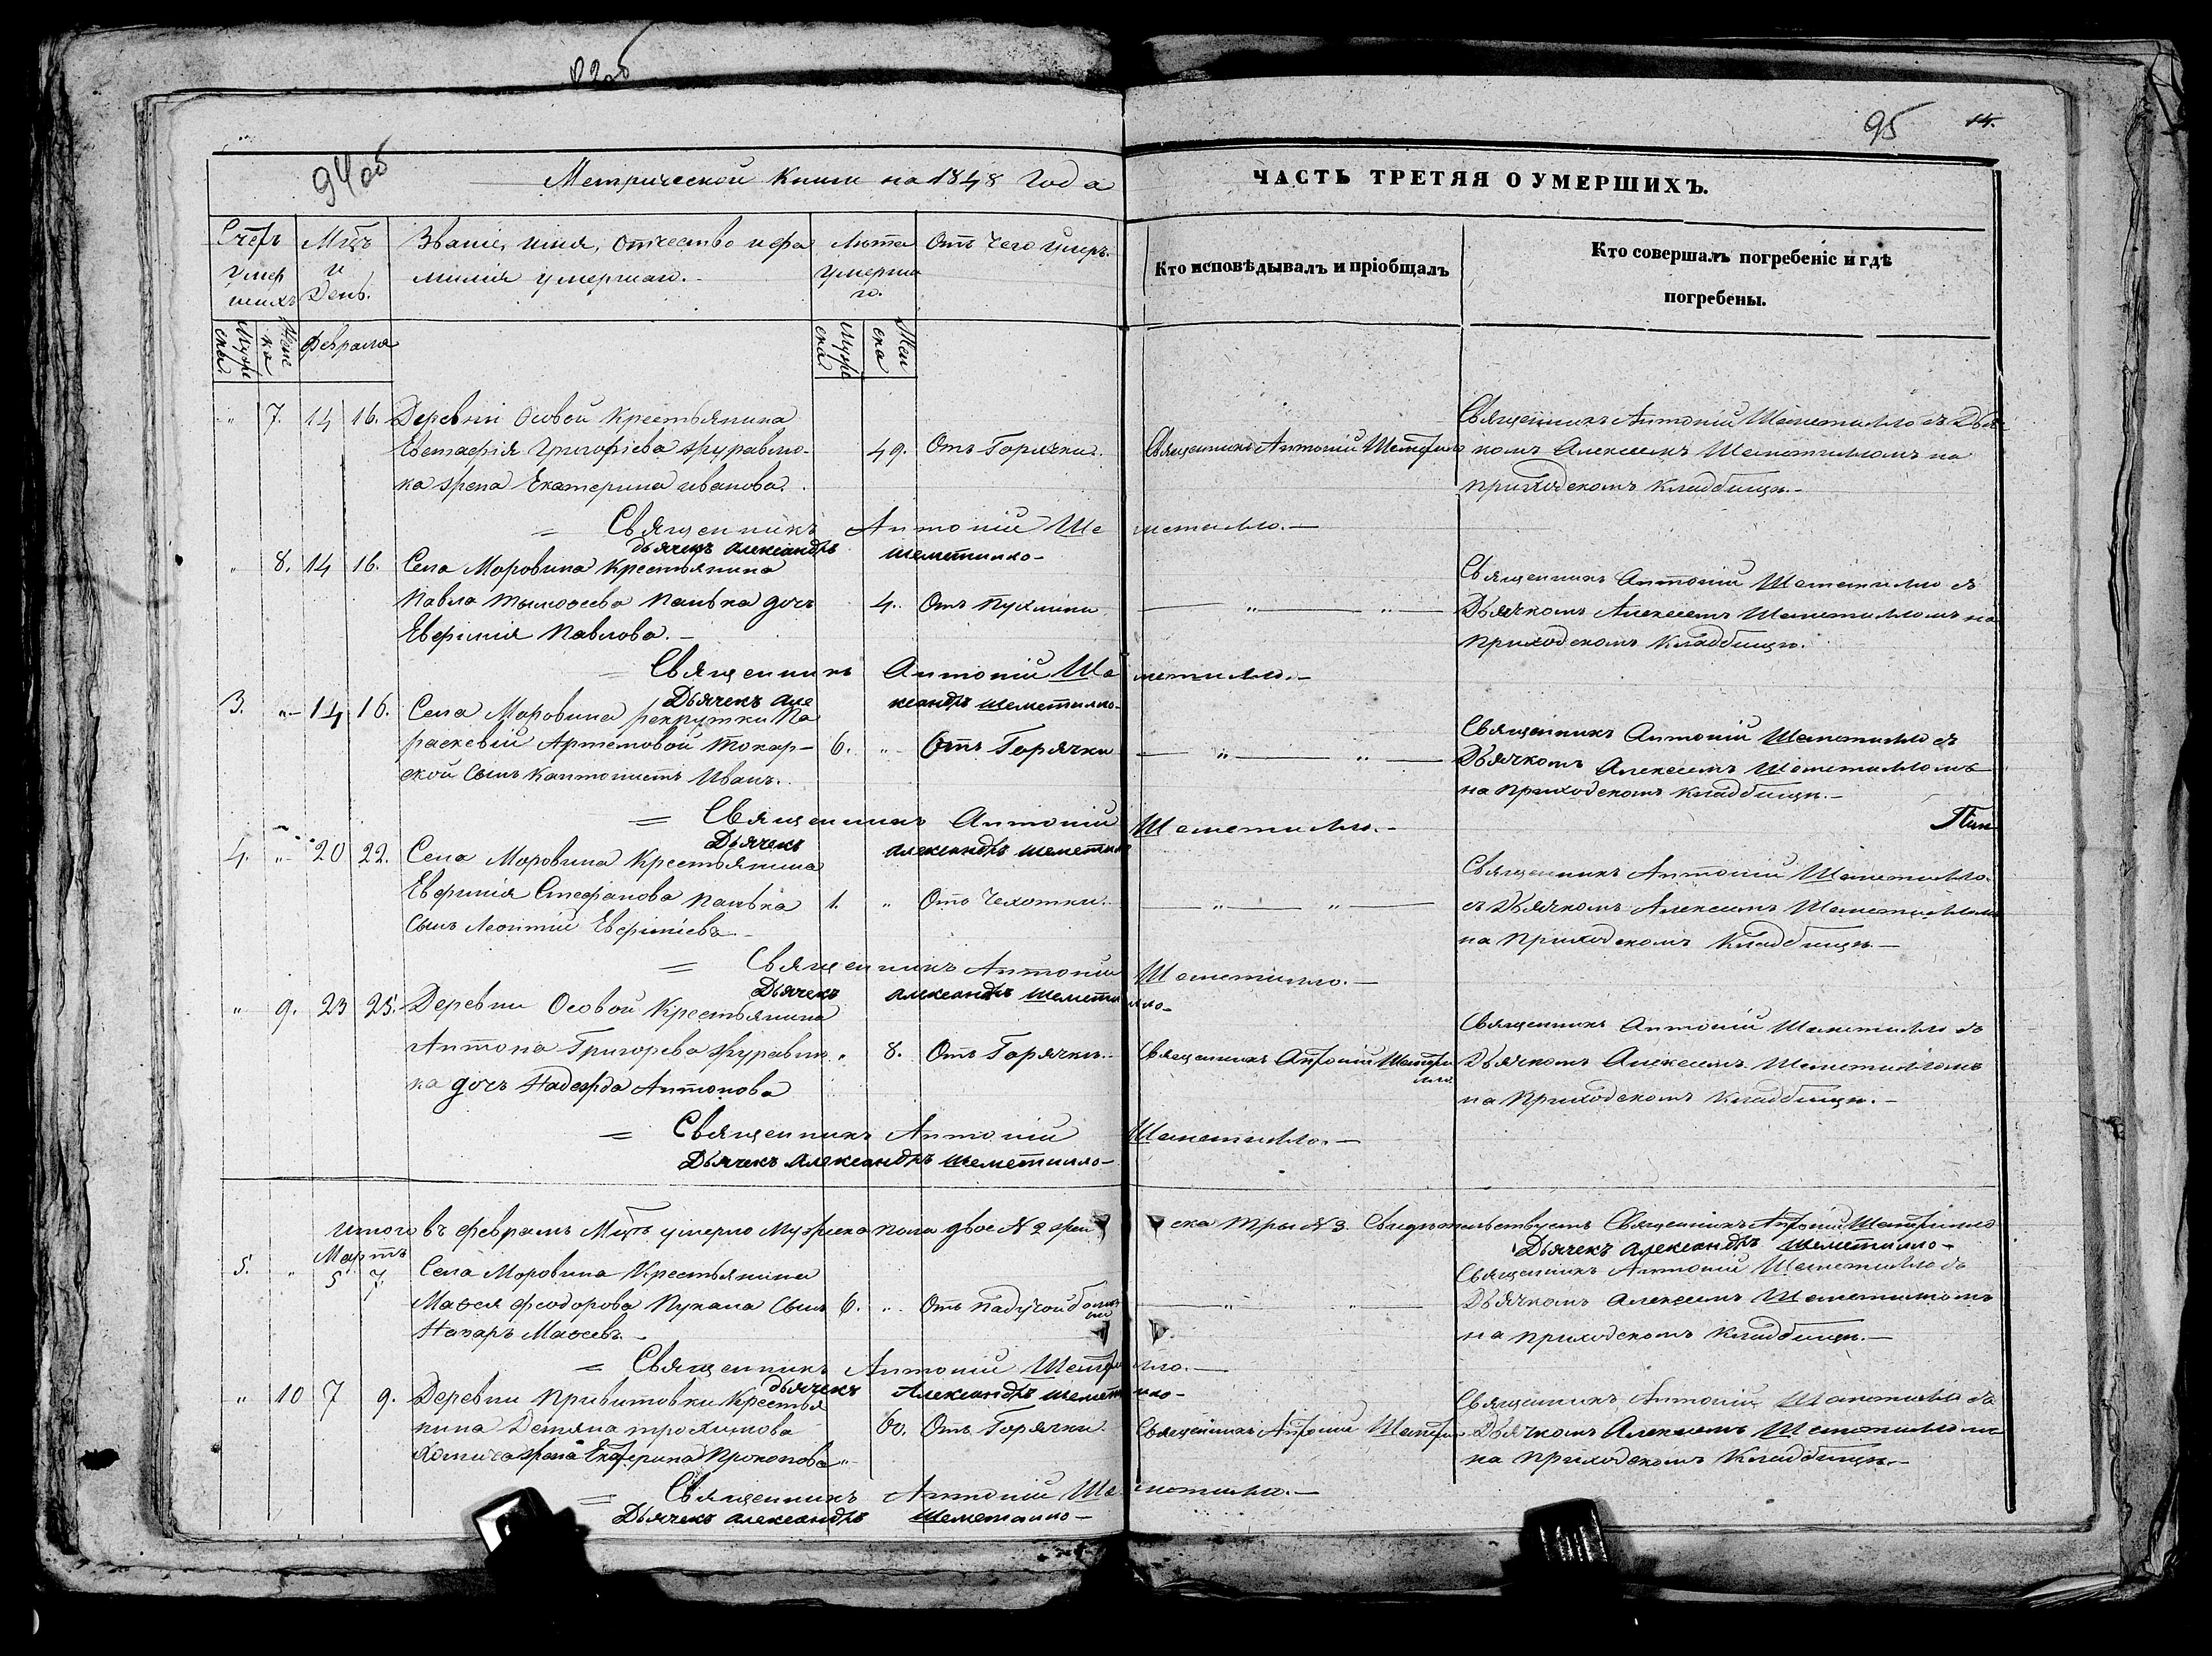 94об
95
14.
Метрической Книги на 1848 Года
ЧАСТЬ ТРЕТЯЯ О УМЕРШИХЪ.
Счетъ умершихъ
Мцъ и День.
Званіе, имя, отчество и фамилія умершаго.
Лѣта умершаго.
Отъ чего умеръ.
Кто исповѣдывалъ и пріобщалъ
Кто совершалъ погребеніе и гдѣ
погребены.
Мужеска
Женска
Февраля
Мужеска
Женска
" 7. 14 16. Деревни Осовой Крестьянина
Евстафія Григорієва Журавлю-
ка жена Екатерина Иванова.
49. Отъ Горячки.
Священникъ Антоній Шеметилло
Священникъ Антоній Шеметилло съ Дья-
комъ Алексеемъ Шеметилломъ на
приходскомъ Кладбищѣ.-
= Священникъ Антоній Шеметилло.-
Дьячекъ Александръ Шеметилло-
" 8. 14 16. Села Моровина Крестьянина
Павла Тимофеева Панька дочь
Евфимія Павлова.-
4. Отъ Пухлины
— " — " —
Священникъ Антоній Шеметилло съ
Дьячкомъ Алексеемъ Шеметилломъ на
приходскомъ Кладбищѣ.
= Священникъ Антоній Шеметилло.-
Дьячекъ Александръ Шеметилло-
3. " 14 16. Села Моровина рекрутки Па
раскевіи Артемовой Токар-
ской сынъ кантонистъ Иванъ.
6. " Отъ Горячки
— " — " —
Священникъ Антоній Шеметилло съ
Дьячкомъ Алексеемъ Шеметилломъ
на приходскомъ Кладбищѣ.-
= Священникъ Антоній Шеметилло.-
Дьячекъ Александръ Шеметилло
4. " 20 22. Села Моровина Крестьянина
Евфимія Стефанова Панька
сынъ Леонтій Евфимієвъ.-
1. " Отъ Чехотки.
— " — " —
Священникъ Антоній Шеметилло
съ Дьячкомъ Алексеемъ Шеметилломъ
на Приходскомъ Кладбищѣ.-
= Священникъ Антоній Шеметилло.-
Дьячекъ Александръ Шеметилло-
" 9. 23 25. Деревни Осовой Крестьянина
Антона Григорева Журавлю
ка дочь Надежда Антонова
" 8. Отъ Горячки.-
Священникъ Антоній Шеметилло
Священникъ Антоній Шеметилло съ
Дьячкомъ Алексеемъ Шеметилломъ
на Приходскомъ Кладбищѣ.-
= Священникъ Антоній Шеметилло.-
Дьячекъ Александръ Шеметилло-
Итого въ Февралѣ Мцѣ умерло Мужеска пола двое № 2 женска три № 3. Свидѣтельствуетъ Священникъ Антоній Шеметилло
Дьячекъ Александръ Шеметилло-
Мартъ
5. " 5 7. Села Моровина Крестьянина
Мафея Феодорова Пукала Сынъ
Назаръ Мафеевъ.-
6. " Отъ падучой болѣзни
— " — " —
Священникъ Антоній Шеметилло съ
Дьячкомъ Алексеемъ Шеметилломъ
на приходскомъ Кладбищѣ.-
= Священникъ Антоній Шеметилло.-
Дьячекъ Александръ Шеметилло-
" 10 7 9. Деревни Привитовки Крестья
нина Демяна Трохимова
жена Екатерина Прокопова"-
60. Отъ Горячки.
Священникъ Антоній Шеметилло
Священникъ Антоній Шеметилло съ
Дьячкомъ Алексеемъ Шеметилломъ
на приходскомъ Кладбищѣ.-
= Священникъ Антоній Шеметилло.-
Дьячекъ Александръ Шеметилло-